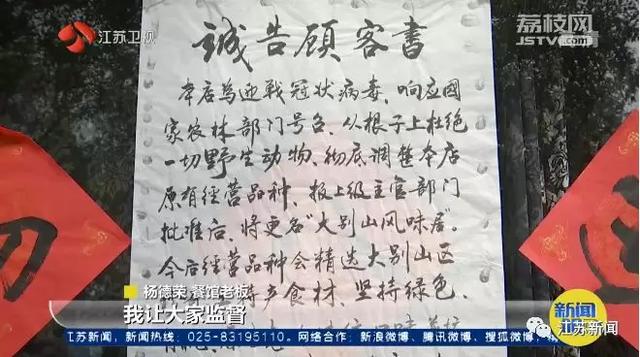 江苏卫视
荔枝网
JSTV.com
诚告顾客書
本店為迎戰冠状病毒、响应国
家农林部门号召、从根子上杜绝
一切野生动物、彻底调整本店
原有经营品种、报上级主官部门
批准后、将更名“大别山风味居”。
今后经营品种会精选大别山区
特产食材、坚持绿色、
杨德荣 餐馆老板
我让大家监督
江苏新闻
江苏新闻，新闻热线：025-83195110。网络合作：新浪微博，腾讯微博，搜狐微博，